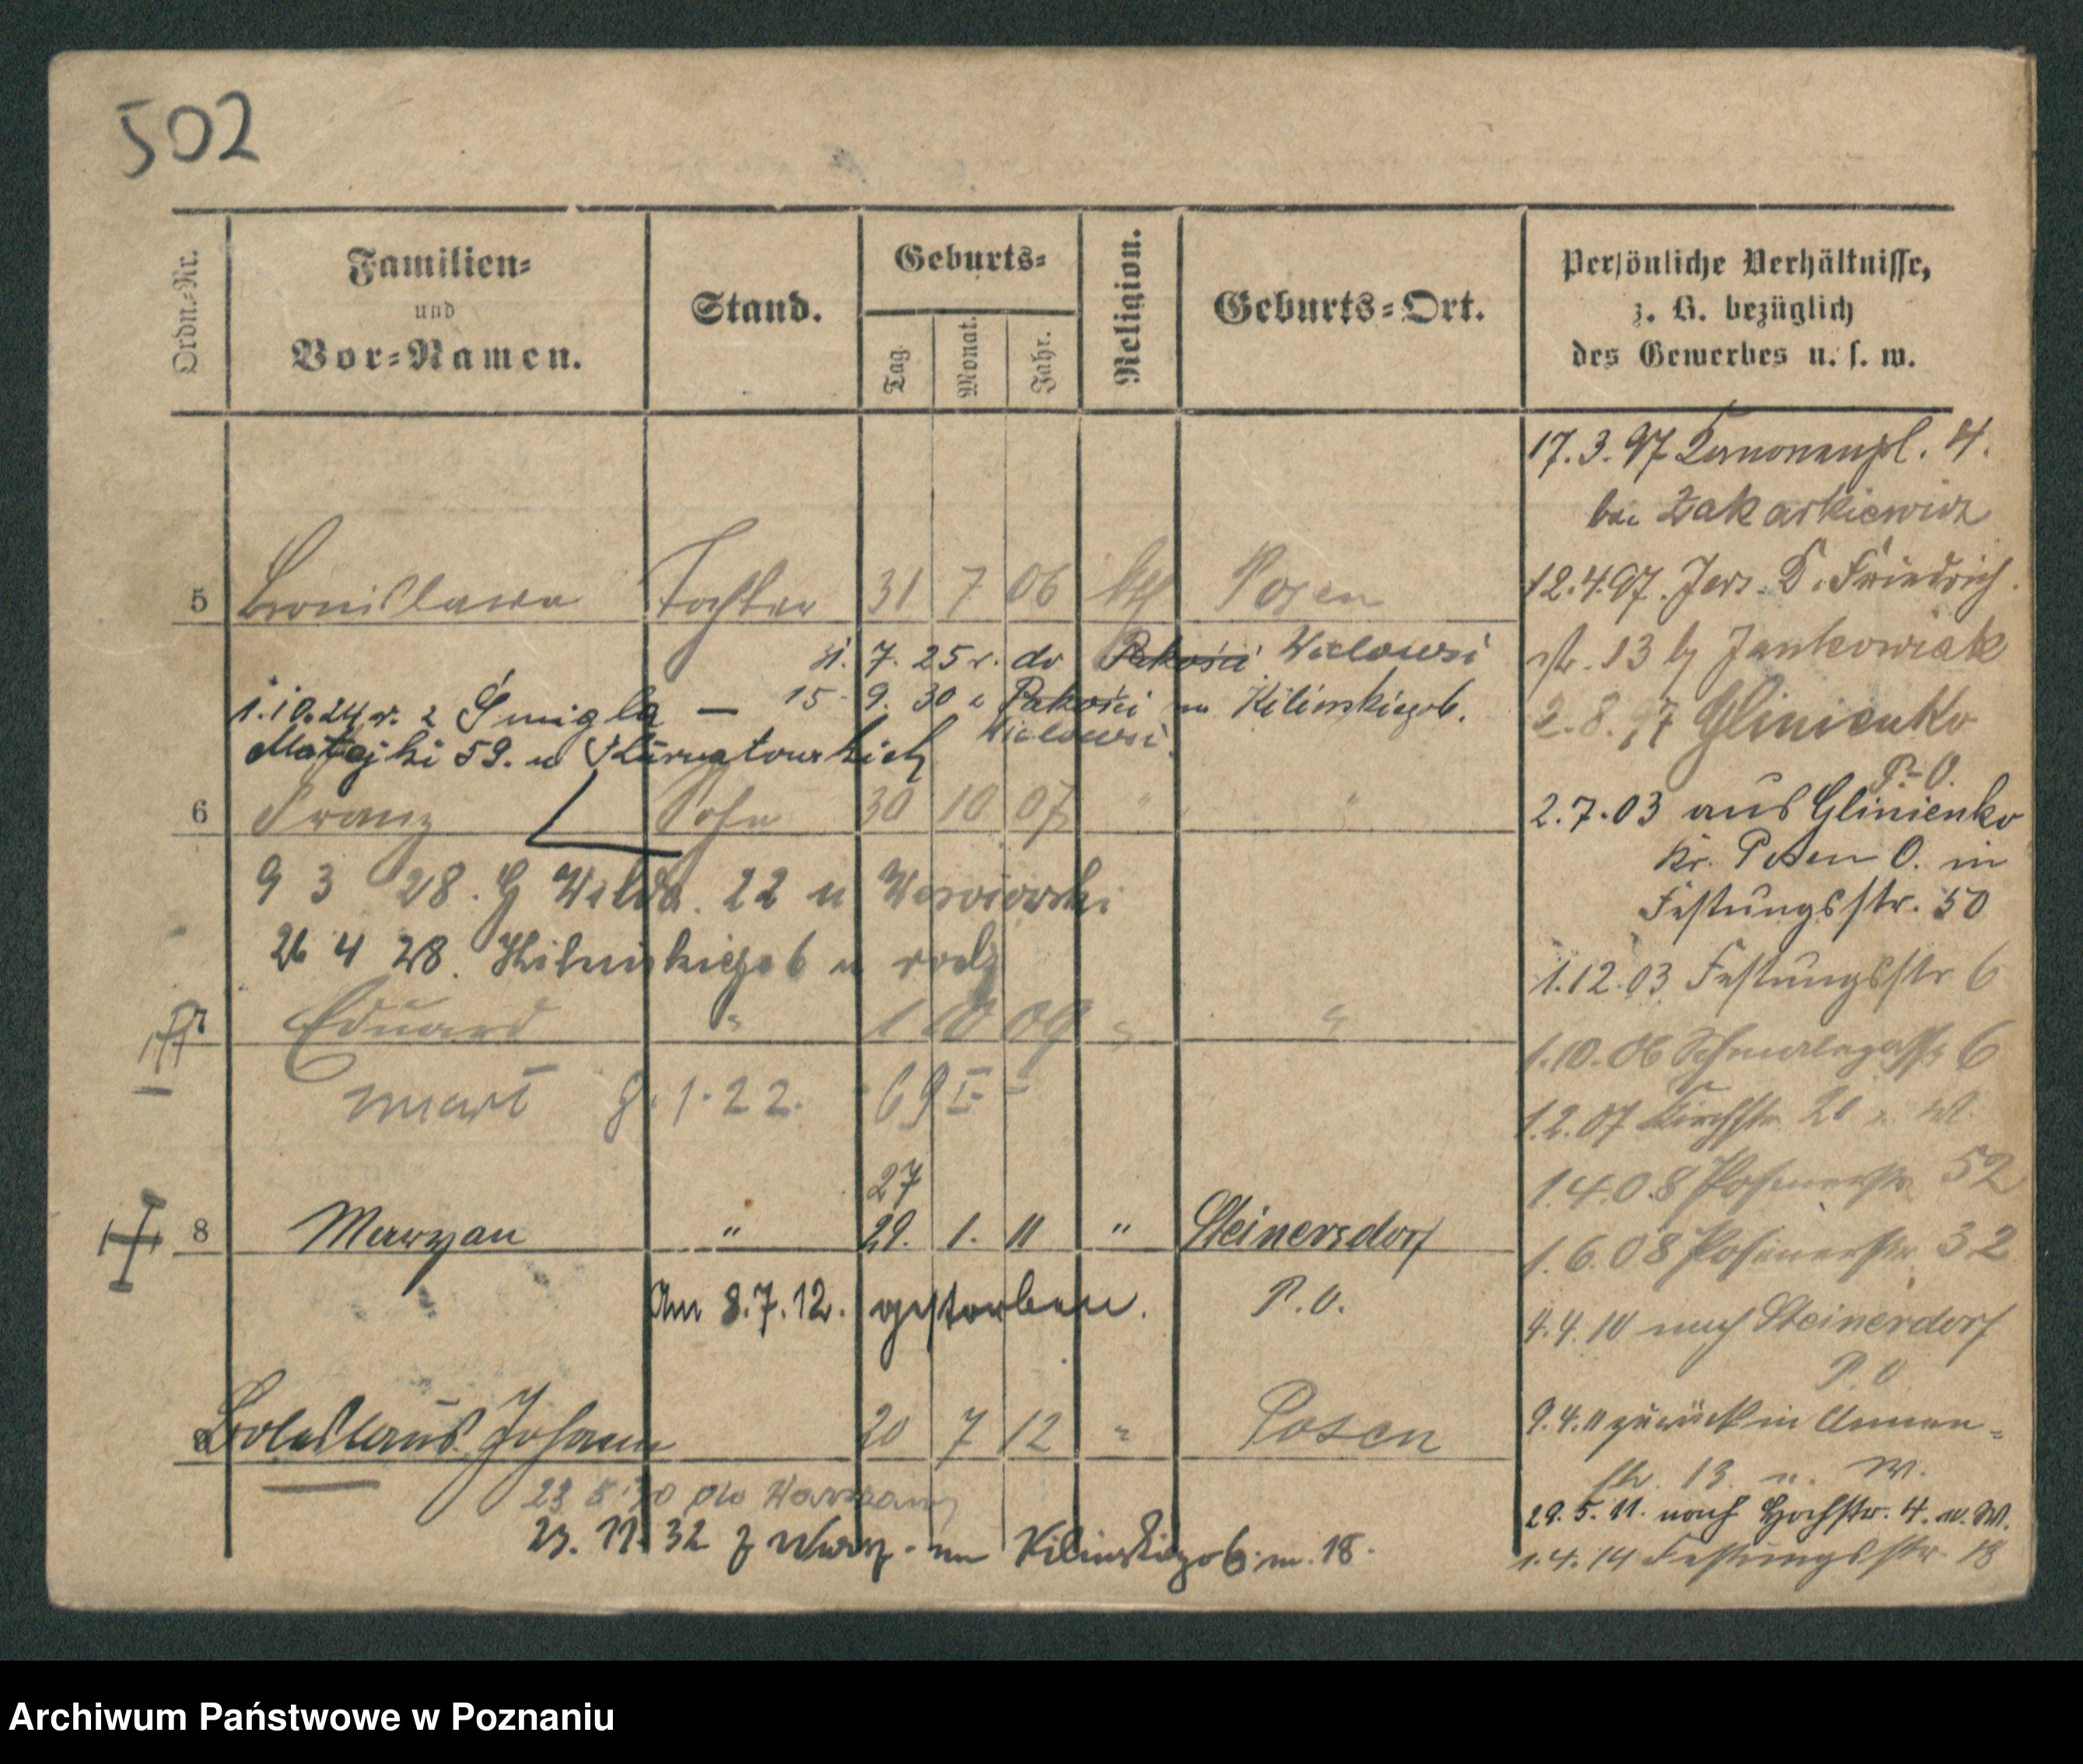 502
Ordn.-Nr.
Familien-
und
Vor-Namen.
Stand.
Geburts-
Tag.
Monat.
Jahr.
Religion.
Geburts-Ort.
Persönliche Verhältnisse,
z. B. bezüglich
des Gewerbes u. s. w.
17.3.97 Kanonenpl. 4.
bei
12.4.97. Jers. K. Friedrich
str. 13 b/ Jankowiak
2.8.97 Glinienko
P. O.
5 Bronislawa Tochter 31 7 06 kth Posen
7. 25 r. do Pakości
1.10.24 r. z Śmigla — 15. 9. 30 z Pakości Kilińskiego 6.
Matejki 59. u
6 Franz Sohn 30 10 07 " "
2.7.03 aus Glinienko
Kr. Posen O. in
Festungsstr. 50
9 3 28. G Wilda. 22 u
26 4 28. Kilińskiego 6 u rodz
1.12.03 Festungsstr 6
7 Eduard " 1 10 09 " "
1.10.06 6
marł 9.1.22. 69 I
1.2.07 Kirchstr
1.4.08 Posenerstr 52
27
8 Maryan " 29. 1. 11 " Steinersdorf
1.6.08 Posenerstr 32
Am 8.7.12. gestorben. P. O.
4.4.10 nach Steinersdorf
P. O
Boleslaus Johann 20 7 12 " Posen
9.4.11 zurück in
str. 13 u. W.
23 5 30 do Warszawy
29.5.11. nach Hochstr. 4. u. W.
23. 11. 32 z Warsz. Kilińskiego 6 m. 18.
1.4.14 Festungsstr. 18
Archiwum Państwowe w Poznaniu